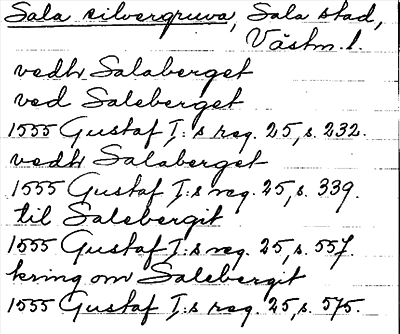 Sala silvergruva, Sala stad,
Västm. l.
vedh Salaberget
ved Saleberget
1555 Gustaf I:s reg. 25, s. 232.
vedh Salaberget
1555 Gustaf I:s reg. 25, s. 339.
til Salebergit
1555 Gustaf I:s reg. 25, s. 557.
kring om Salebergit
1555 Gustaf I:s reg. 25, s. 575.